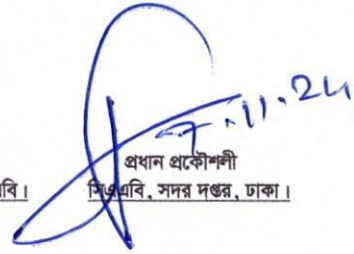 7.11.24
প্রধান প্রকৌশলী
বি। সিএএবি, সদর দপ্তর, ঢাকা।